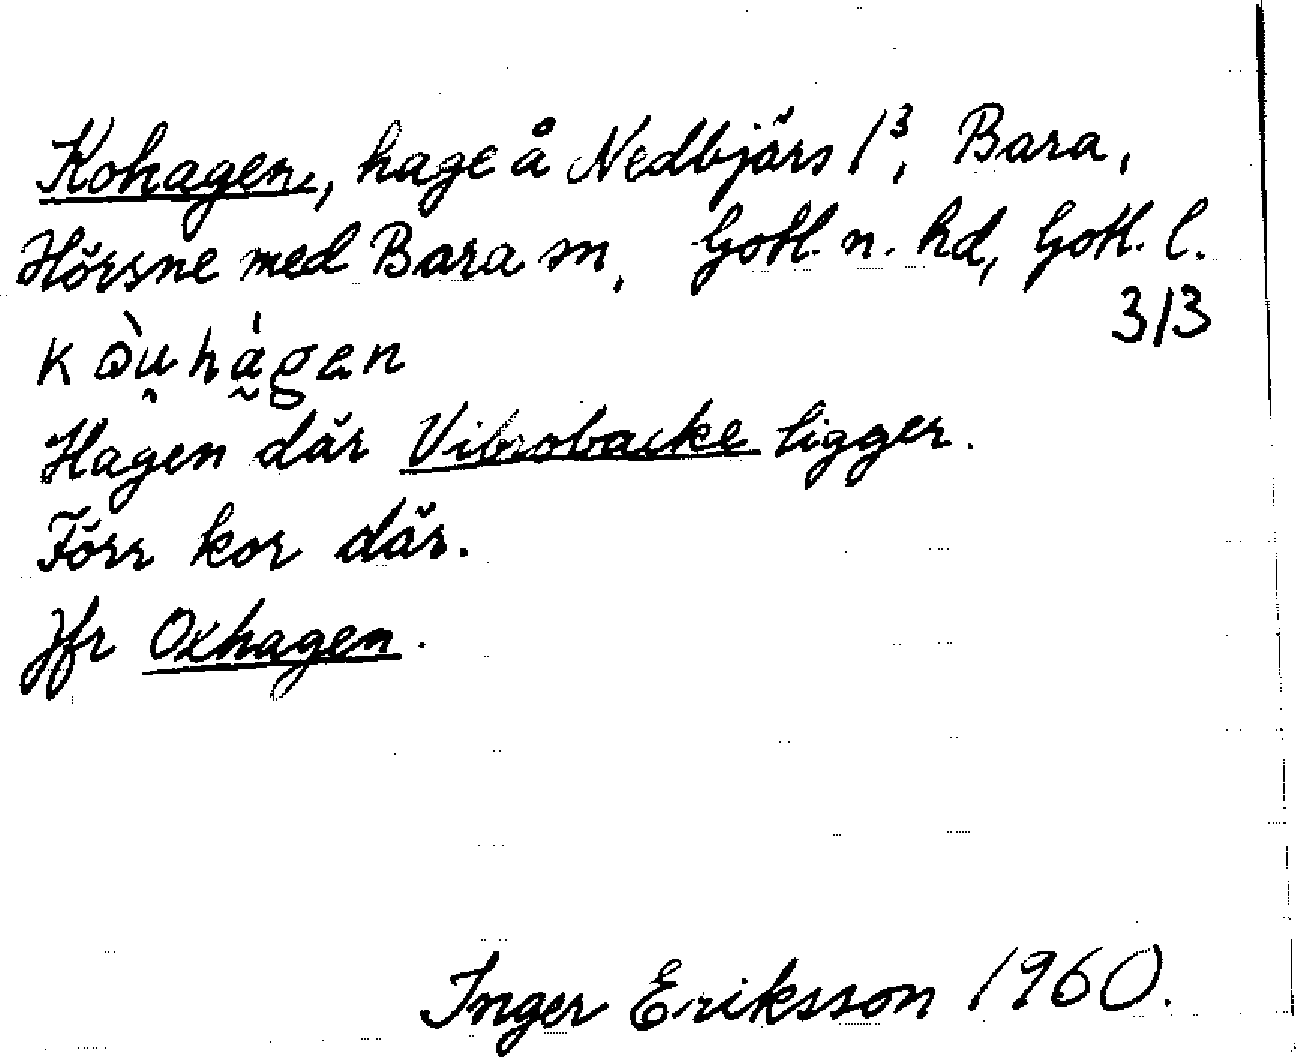 Kohagen, hage å Nedbjärs 1³, Bara,
Hörsne med Bara sn, Gotl. n. hd, Gotl. l.
313
kə̀u̯hà̰gen
Hagen där Vibrobacke ligger.
Förr kor där.
Jfr Oxhagen.
Inger Eriksson 1960.